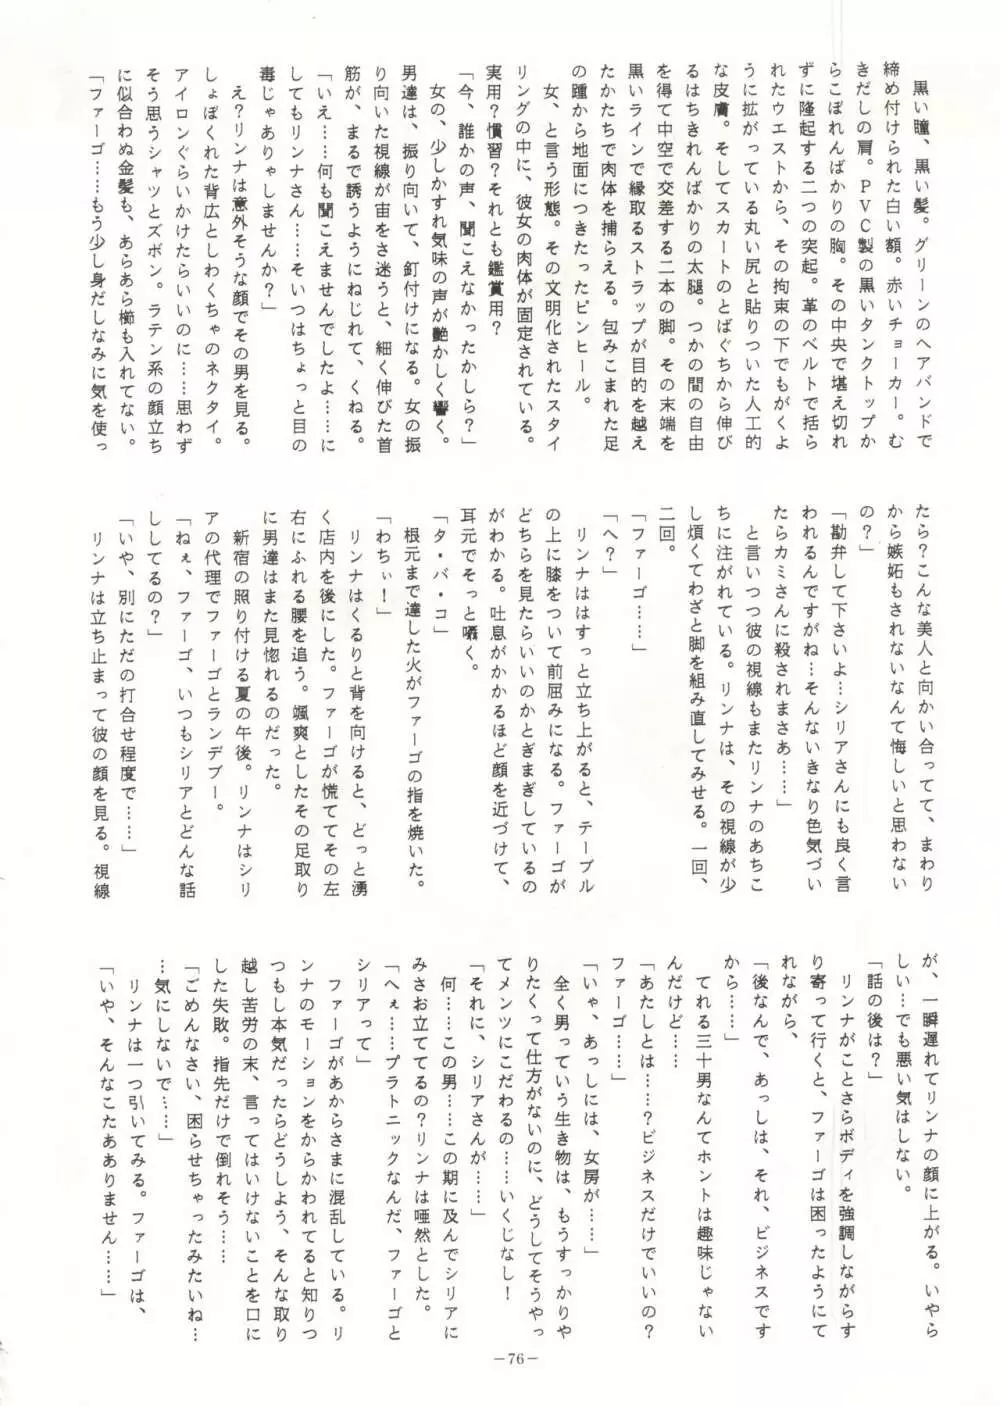 黒い瞳、黒い髪。グリーンのヘアバンドで
締め付けられた白い額。赤いチョーカー。む
きだしの肩。PVC製の黒いタンクトップか
らこぼれんばかりの胸。その中央で堪え切れ
ずに隆起する二つの突起。革のベルトで括ら
れたウエストから、その拘束の下でもがくよ
うに拡がっている丸い尻と貼りついた人工的
な皮膚。そしてスカートのとばぐちから伸び
るはちきれんばかりの太腿。つかの間の自由
を得て中空で交差する二本の脚。その末端を
黒いラインで縁取るストラップが目的を越え
たかたちで肉体を捕らえる。包みこまれた足
の踵から地面につきたったピンヒール。
女、と言う形態。その文明化されたスタイ
リングの中に、彼女の肉体が固定されている。
実用？慣習？それとも鑑賞用？
「今、誰かの声、聞こえなかったかしら？」
女の、少しかすれ気味の声が艶かしく響く。
男達は、振り向いて、釘付けになる。女の振
り向いた視線が宙をさ迷うと、細く伸びた首
筋が、まるで誘うようにねじれて、くねる。
「いえ……何も聞こえませんでしたよ……に
してもリンナさん……そいつはちょっと目の
毒じゃありゃしませんか？」
え？リンナは意外そうな顔でその男を見る。
しょぼくれた背広としわくちゃのネクタイ。
アイロンぐらいかけたらいいのに……思わず
そう思うシャツとズボン。ラテン系の顔立ち
に似合わぬ金髪も、あらあら櫛も入れてない。
「ファーゴ……もう少し身だしなみに気を使っ
たら？こんな美人と向かい合ってて、まわり
から嫉妬もされないなんて悔しいと思わない
の？」
「勘弁して下さいよ…シリアさんにも良く言
われるんですがね…そんないきなり色気づい
たらカミさんに殺されまさあ……」
と言いつつ彼の視線もまたリンナのあちこ
ちに注がれている。リンナは、その視線が少
し煩くてわざと脚を組み直してみせる。一回、
二回。
「ファーゴ……」
「へ？」
リンナははすっと立ち上がると、テーブル
の上に膝をついて前屈みになる。ファーゴが
どちらを見たらいいのかとぎまぎしているの
がわかる。吐息がかかるほど顔を近づけて、
耳元でそっと囁く。
「タ・バ・コ」
根元まで達した火がファーゴの指を焼いた。
「わちぃ！」
リンナはくるりと背を向けると、どっと湧
く店内を後にした。ファーゴが慌ててその左
右にふれる腰を追う。颯爽としたその足取り
に男達はまた見惚れるのだった。
新宿の照り付ける夏の午後。リンナはシリ
アの代理でファーゴとランデブー。
「ねぇ、ファーゴ、いつもシリアとどんな話
ししてるの？」
「いや、別にただの打合せ程度で……」
リンナは立ち止まって彼の顔を見る。視線
が、一瞬遅れてリンナの顔に上がる。いやら
しい…でも悪い気はしない。
「話の後は？」
リンナがことさらボディを強調しながらす
り寄って行くと、ファーゴは困ったようにて
れながら、
「後なんで、あっしは、それ、ビジネスです
から……」
てれる三十男なんてホントは趣味じゃない
んだけど……
「あたしとは……？ビジネスだけでいいの？
ファーゴ……」
「いゃ、あっしには、女房が……」
全く男っていう生き物は、もうすっかりや
りたくって仕方がないのに、どうしてそうやっ
てメンツにこだわるの……いくじなし！
「それに、シリアさんが……」
何……この男……この期に及んでシリアに
みさお立ててるの？リンナは唖然とした。
「へぇ……プラトニックなんだ、ファーゴと
シリアって」
ファーゴがあからさまに混乱している。リ
ンナのモーションをからかわれてると知りつ
つもし本気だったらどうしよう、そんな取り
越し苦労の末、言ってはいけないことを口に
した失敗。指先だけで倒れそう……
「ごめんなさい、困らせちゃったみたいね…
…気にしないで……」
リンナは一つ引いてみる。ファーゴは、
「いや、そんなこたあありません……」
－76－